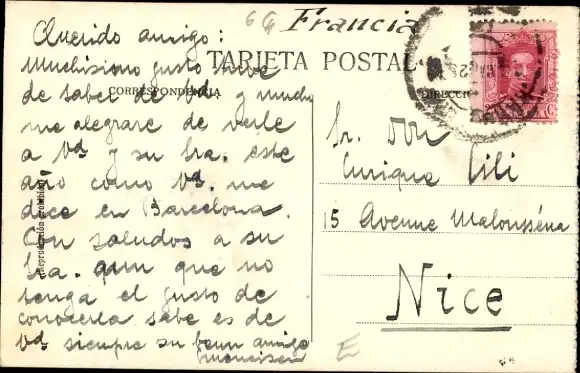 Francia
TARJETA POSTAL
CORRESPONDENCIA
Querido amigo:
Muchísimo gusto tuve
de saber de Vd y mucho
me alegraré de verle
a Vd y su Sra. este
año como Vd. me
dice en Barcelona.
Con saludos a su
Sra. aun que no
tenga el gusto de
conocerla sabe es de
Vd siempre su buen amigo
Reproducción prohibida
Sr. Don
Enrique Pili
15 Avenue Malausséna
Nice